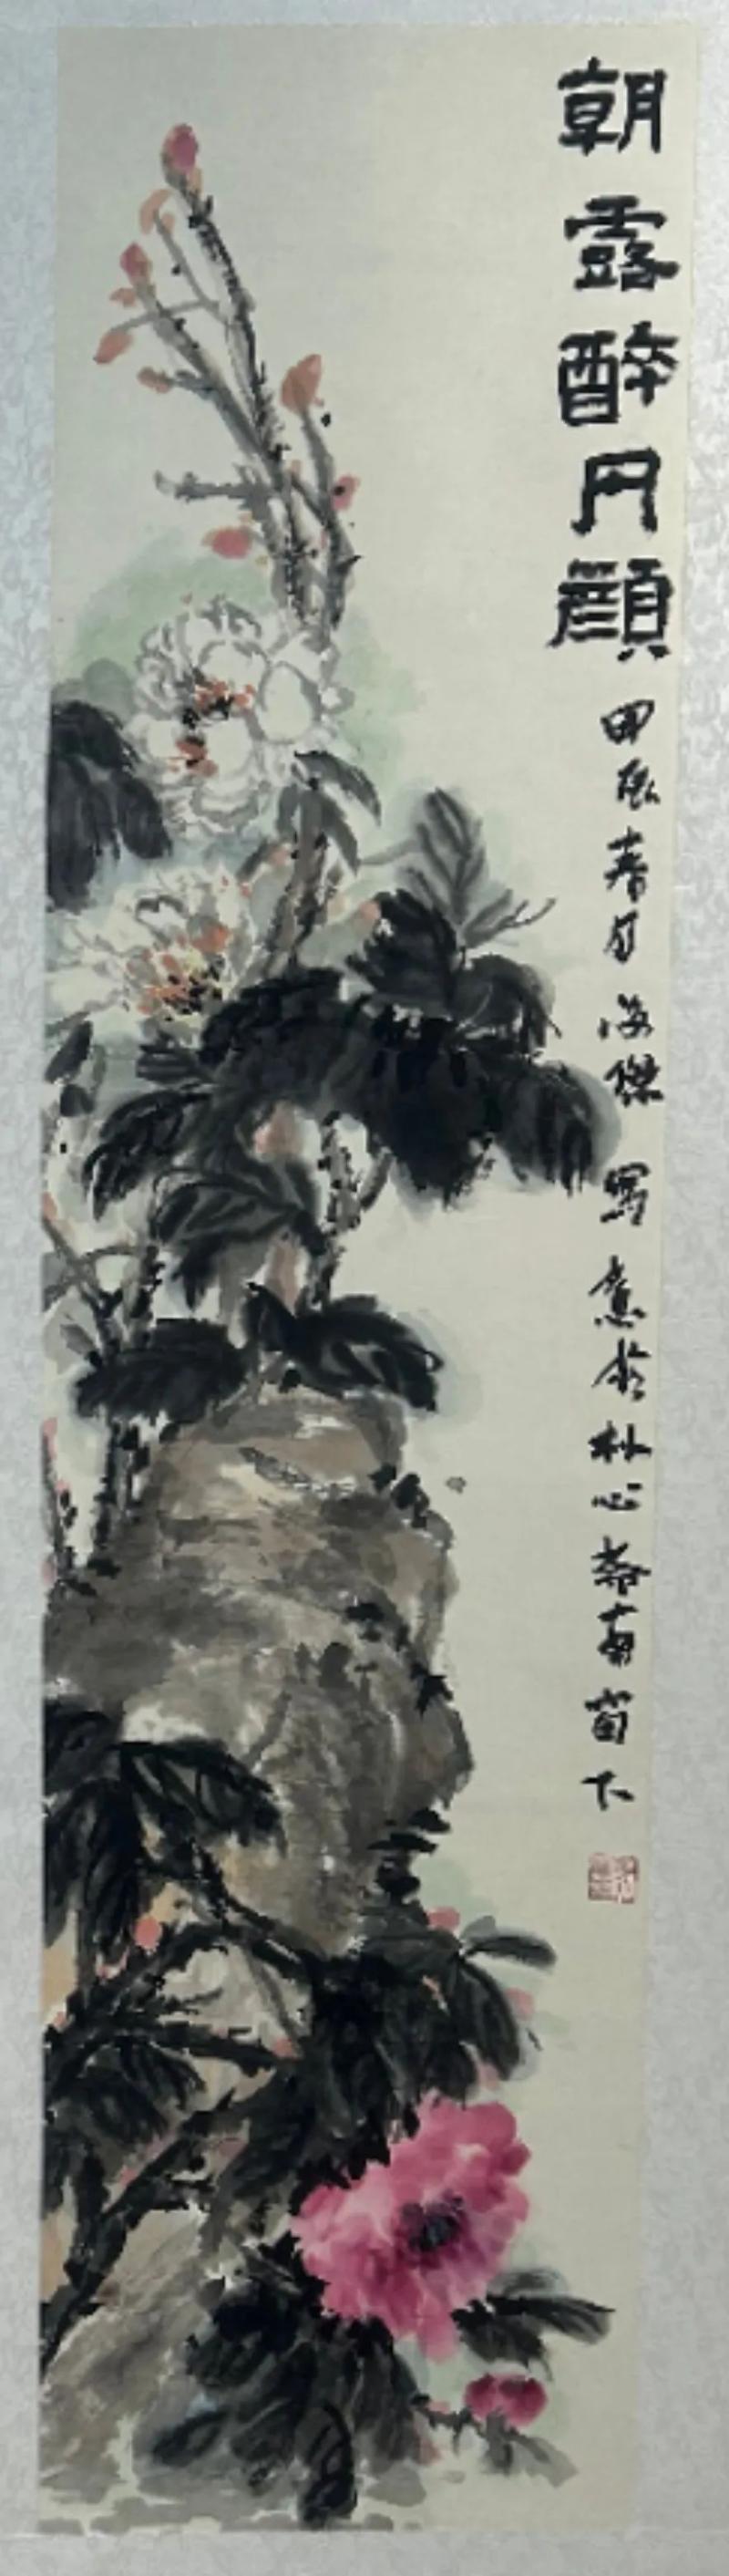 朝露醉丹顏 甲辰春月海傑寫意於朴心齋南窗下